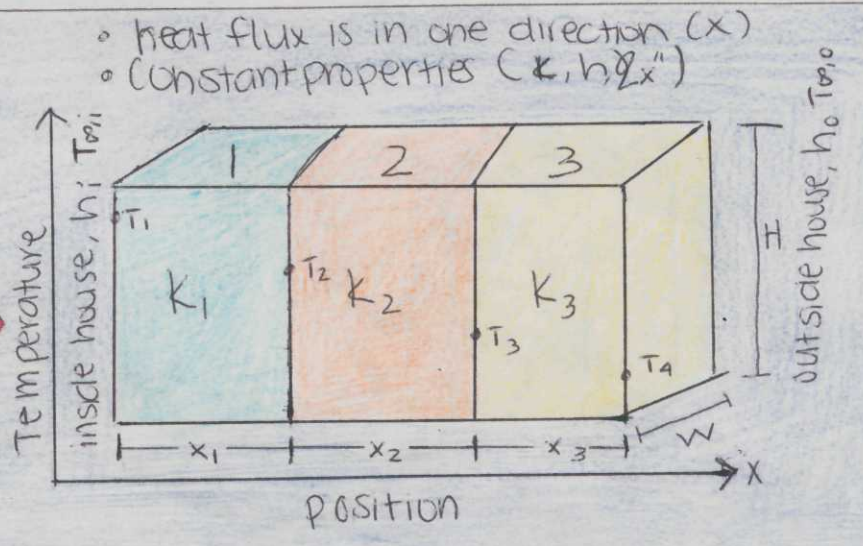 • heat flux is in one direction (x)
• Constant properties (k, h, qx")
Temperature
inside house, hi T∞,i
1
2
3
T1
T2
T3
T4
K1
K2
K3
H
W
outside house, ho T∞,o
x1
x2
x3
x
position